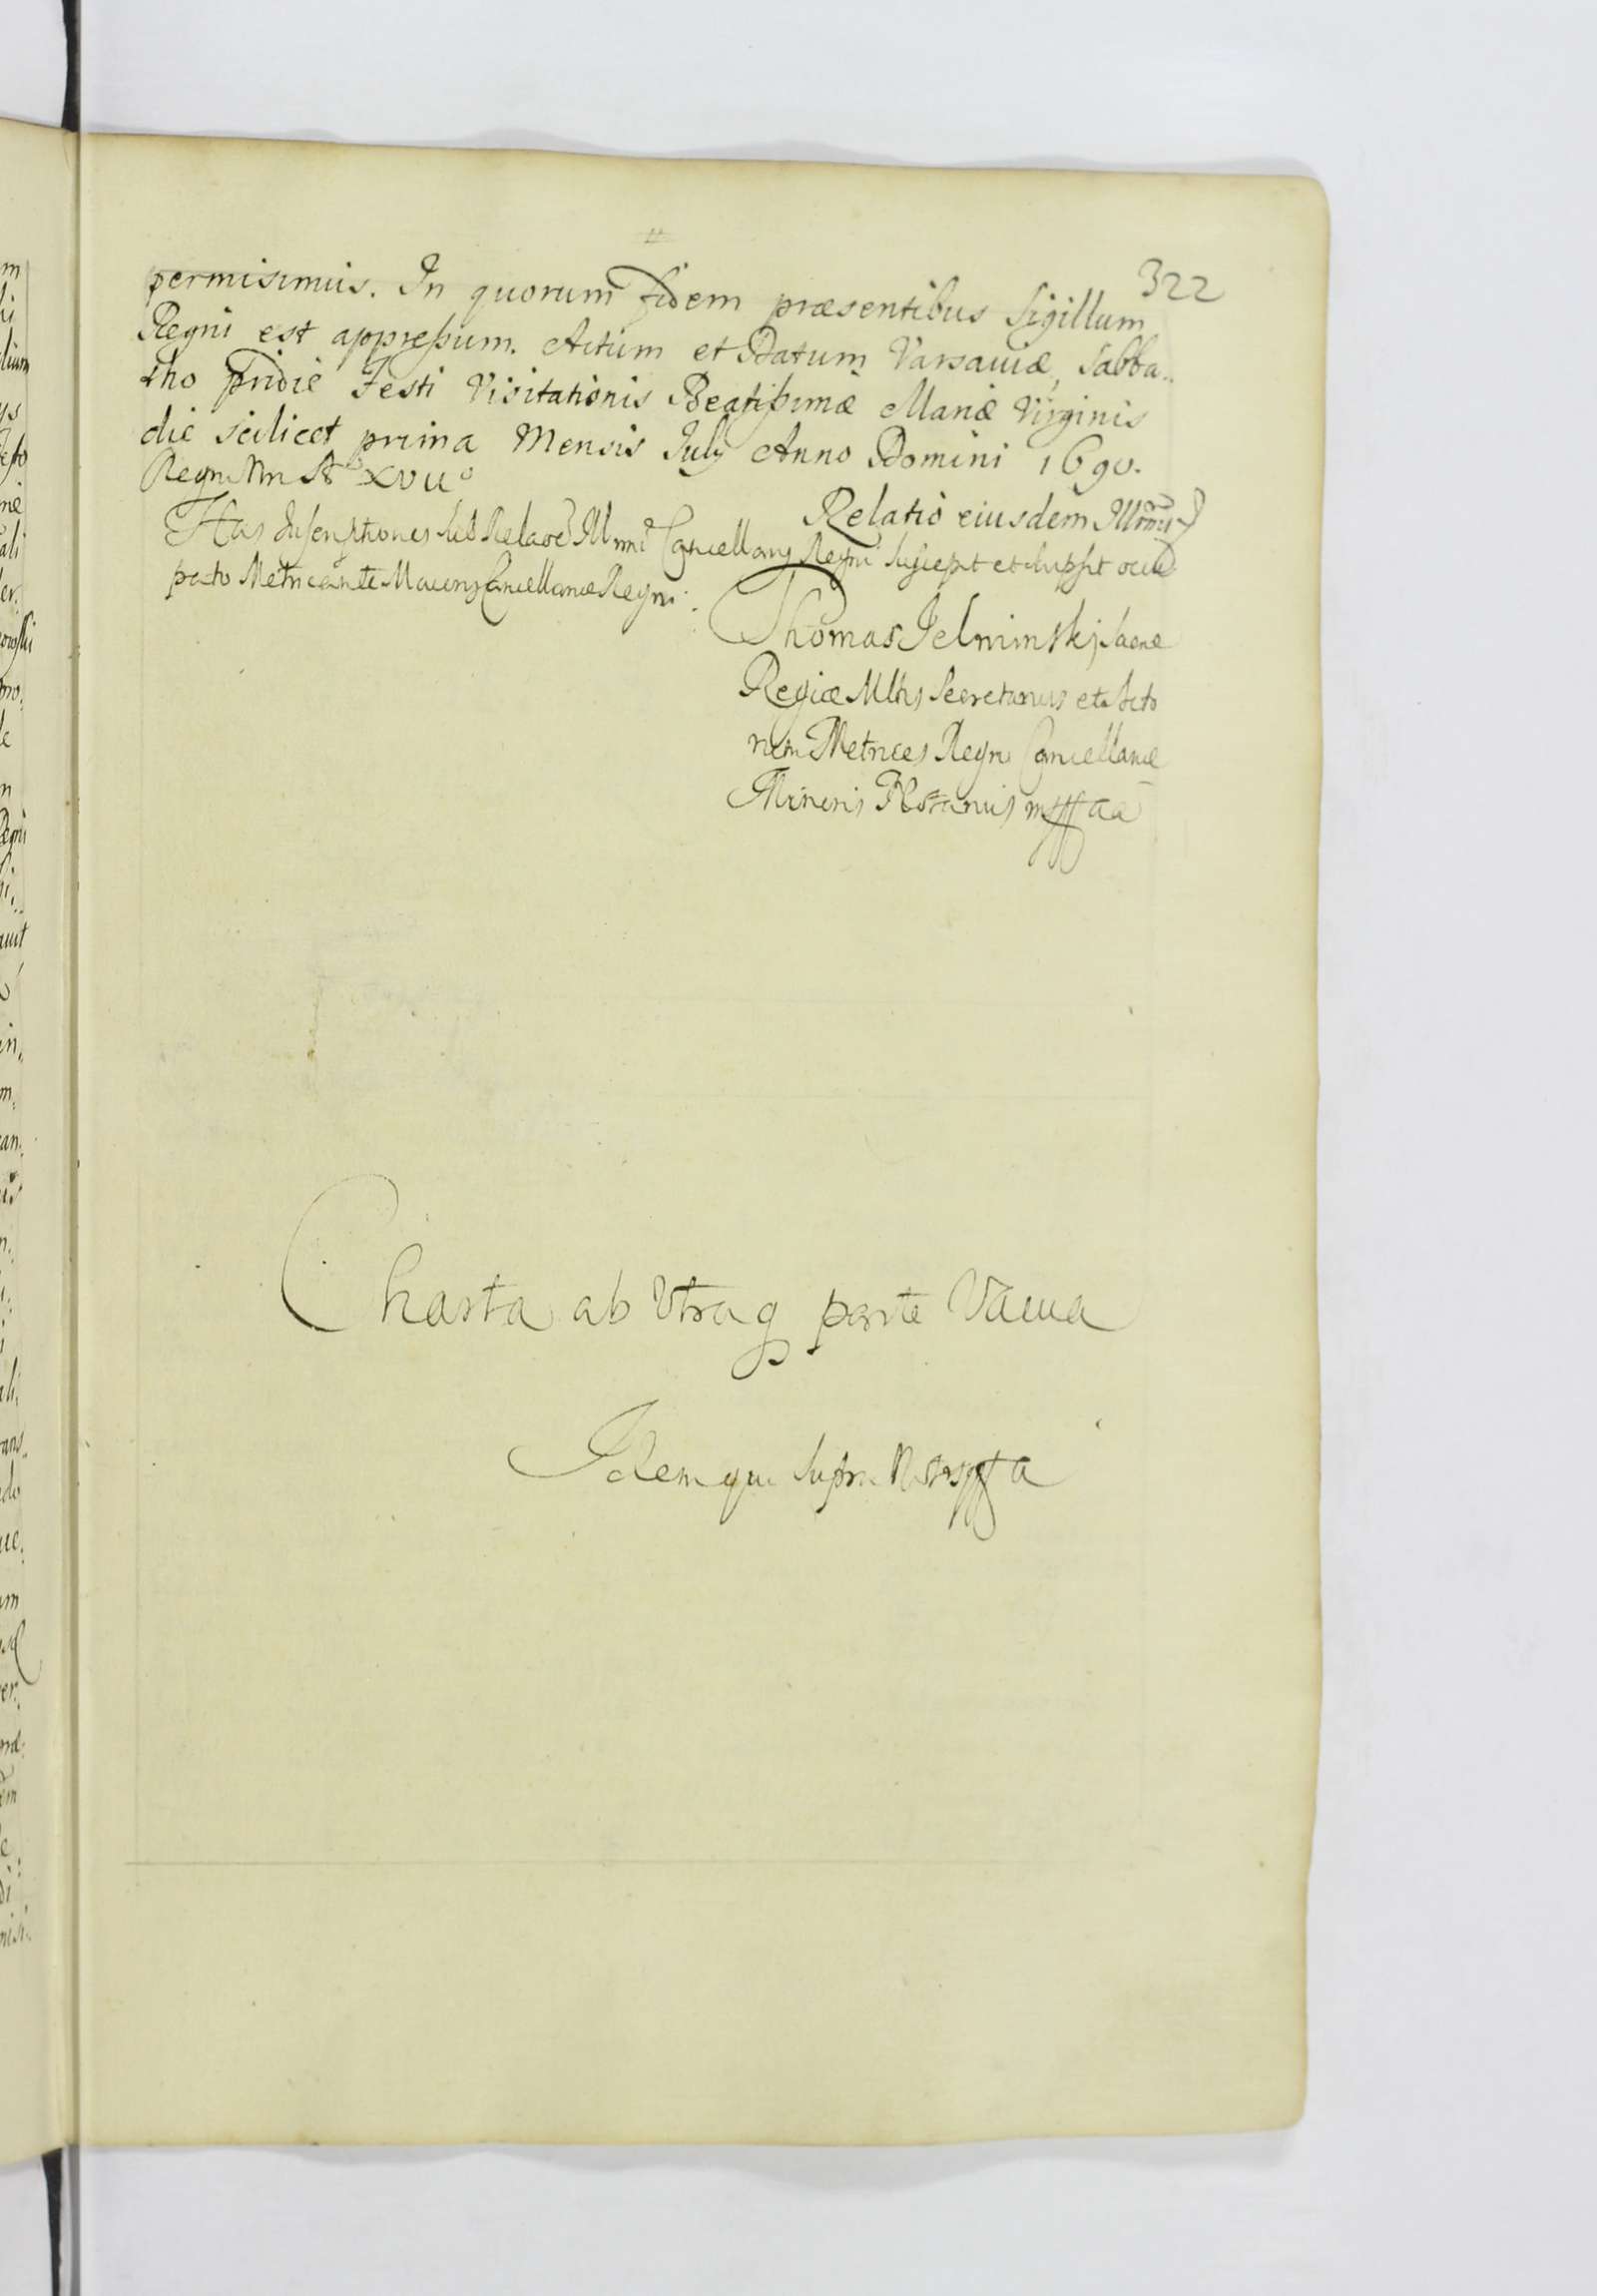 322
permisimus. In quorum fidem præsentibus Sigillum
Regni est appreßum. Actum et Datum Varsaviæ, Sabba..
tho pridie Festi Visitationis Beatißimæ Mariæ Virginis
die scilicet prima Mensis July Anno Domini 1690.
Regni Nri Ao XVIIo
Relatio eiusdem Illrmi
Has Inscriptiones sub Relaoe Illrmi Cancellarij Regni suscepit et
Metricante Maioris Cancellariæ Regni.
Thomas Jelminskj Sacræ
Regiæ Mttis Secretarius et Acto
rum Metrices Regni Cancellariæ
Minoris Notarius mp
Charta ab Utraq parte Vacua
Idem qui supra Notarius